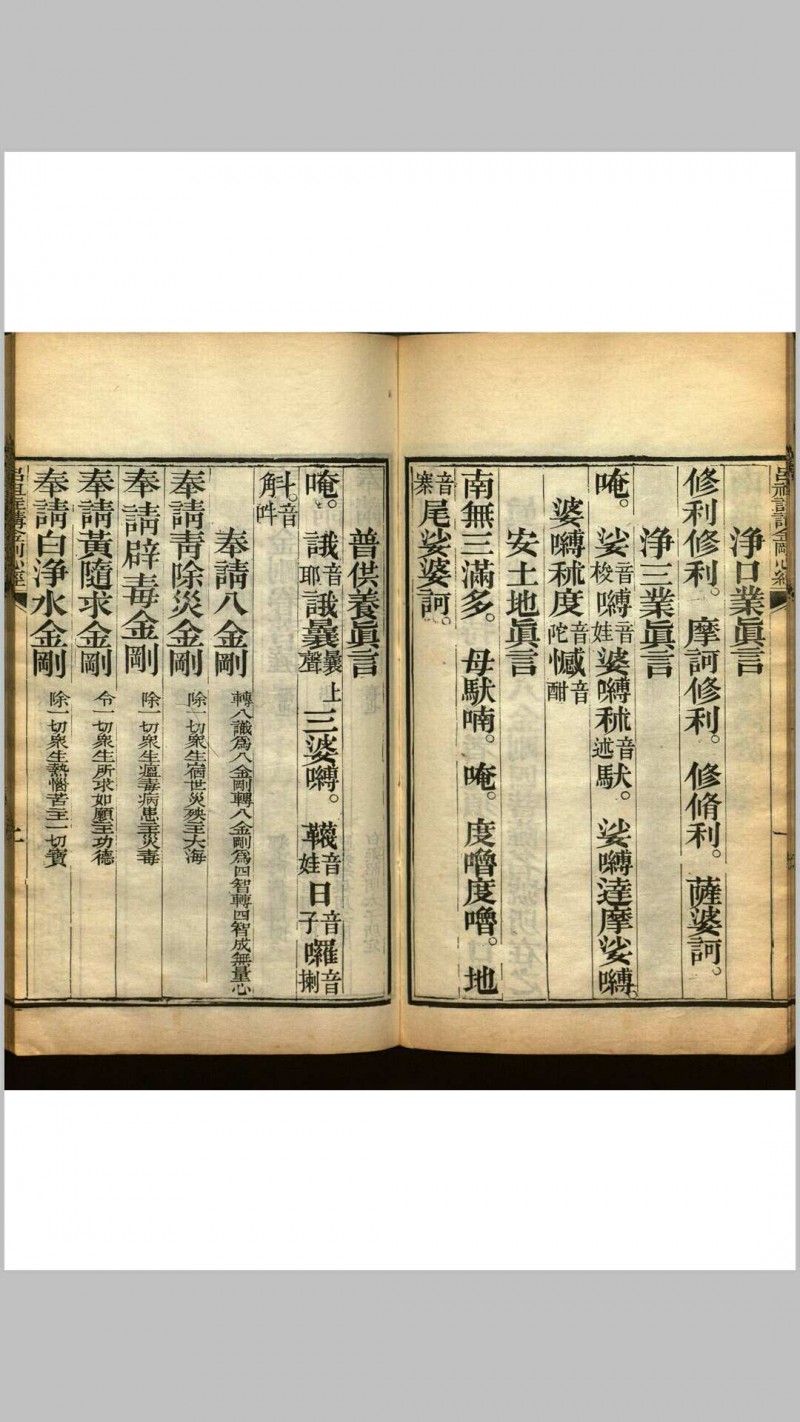 淨口業眞言
修利修利。摩訶修利。修脩利。薩婆訶。
淨三業眞言
唵。娑音梭嚩音娃婆嚩秫音述馱。娑嚩達摩娑嚩
婆嚩秫度音咜憾音酣
安土地眞言
南無三滿多。母馱喃。唵。度嚕度嚕。地
音寨尾娑婆訶。
普供養眞言
唵。誐音耶誐曩曩上聲三婆嚩。韈音娃日音子囉音揦
斛。音
奉請八金剛 轉八識爲八金剛轉八金剛爲四智轉四智成無量心
奉請靑除災金剛 除一切衆生宿世災殃主大海
奉請辟毒金剛 除一切衆生瘟毒病患主災毒
奉請黃隨求金剛 令一切衆生所求如願主功德
奉請白淨水金剛 除一切衆生熱惱苦主一切寶